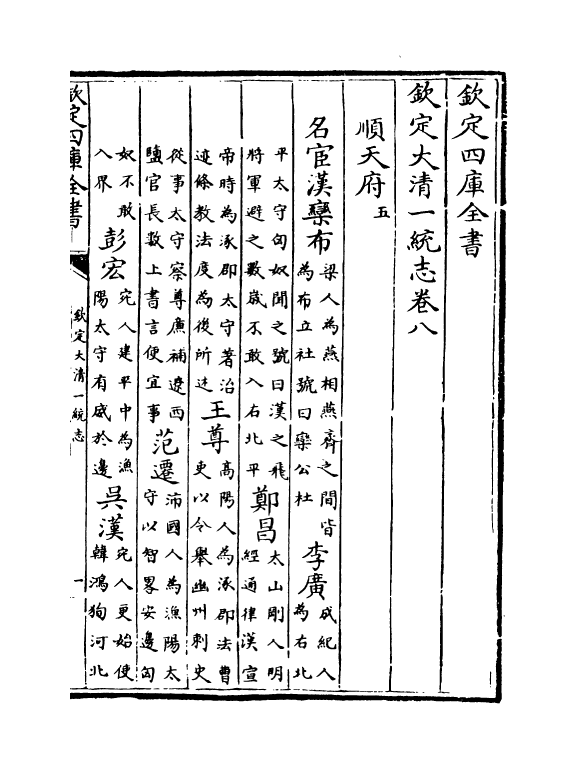 欽定四庫全書
欽定大清一統志卷八
順天府五
名宦漢欒布梁人為燕相燕齊之間皆為布立社號曰欒公社李廣成紀人為右北
平太守匈奴聞之號曰漢之飛將軍避之數歲不敢入右北平鄭昌太山剛人明經通律漢宣
帝時為涿郡太守著治迹條教法度為後所述王尊高陽人為涿郡法曹吏以令舉幽州刺史
從事太守察尊廉補遼西鹽官長數上書言便宜事范遷沛國人為漁陽太守以智畧安邊匈
奴不敢入界彭宏宛人建平中為漁陽太守有威於邊吳漢宛人更始使韓鴻狥河北
欽定四庫全書
欽定大清一統志
一